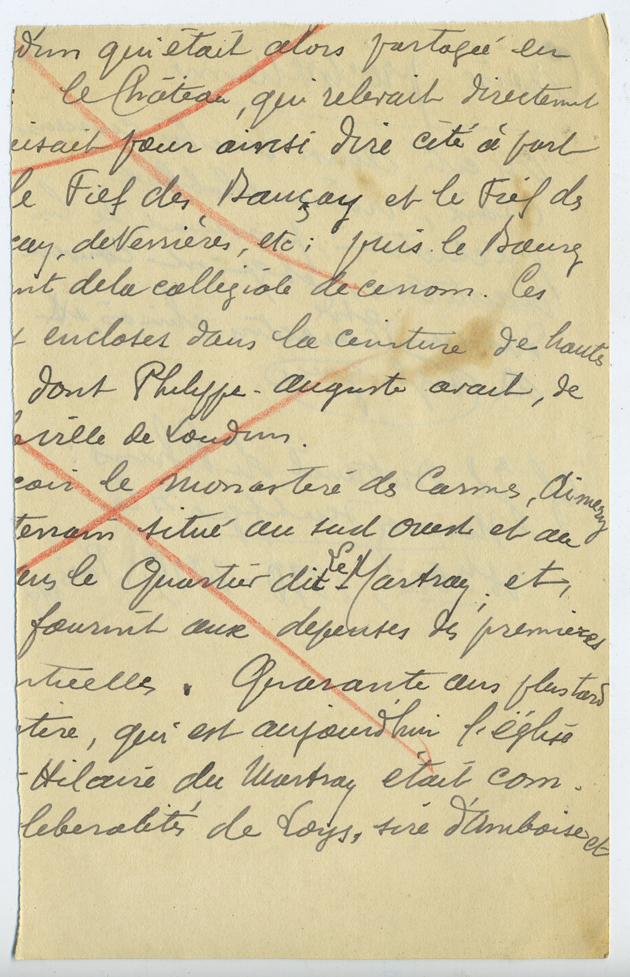 dun qui était alors partagée en
le Château, qui relevait directement
isait pour ainsi dire cité à part
le Fief des Bauçay et le Fief de
çay, de Verrières, etc; puis le Bourg
nt de la collégiale de cenom. Ces
encloses dans la ceinture de hautes
dont Philippe-auguste avait, de
ville de Loudun.
coir le monastère des Carmes, Aimery
terrain situé au sud ouest et au
ans le Quartier dit Le Martray, et,
fournit aux dépenses des premières
ntielles. Quarante ans plus tard
tère, qui est aujourd'hui l'église
-Hilaire du Martray était com-
liberalités de Loys, sire d'Amboise et